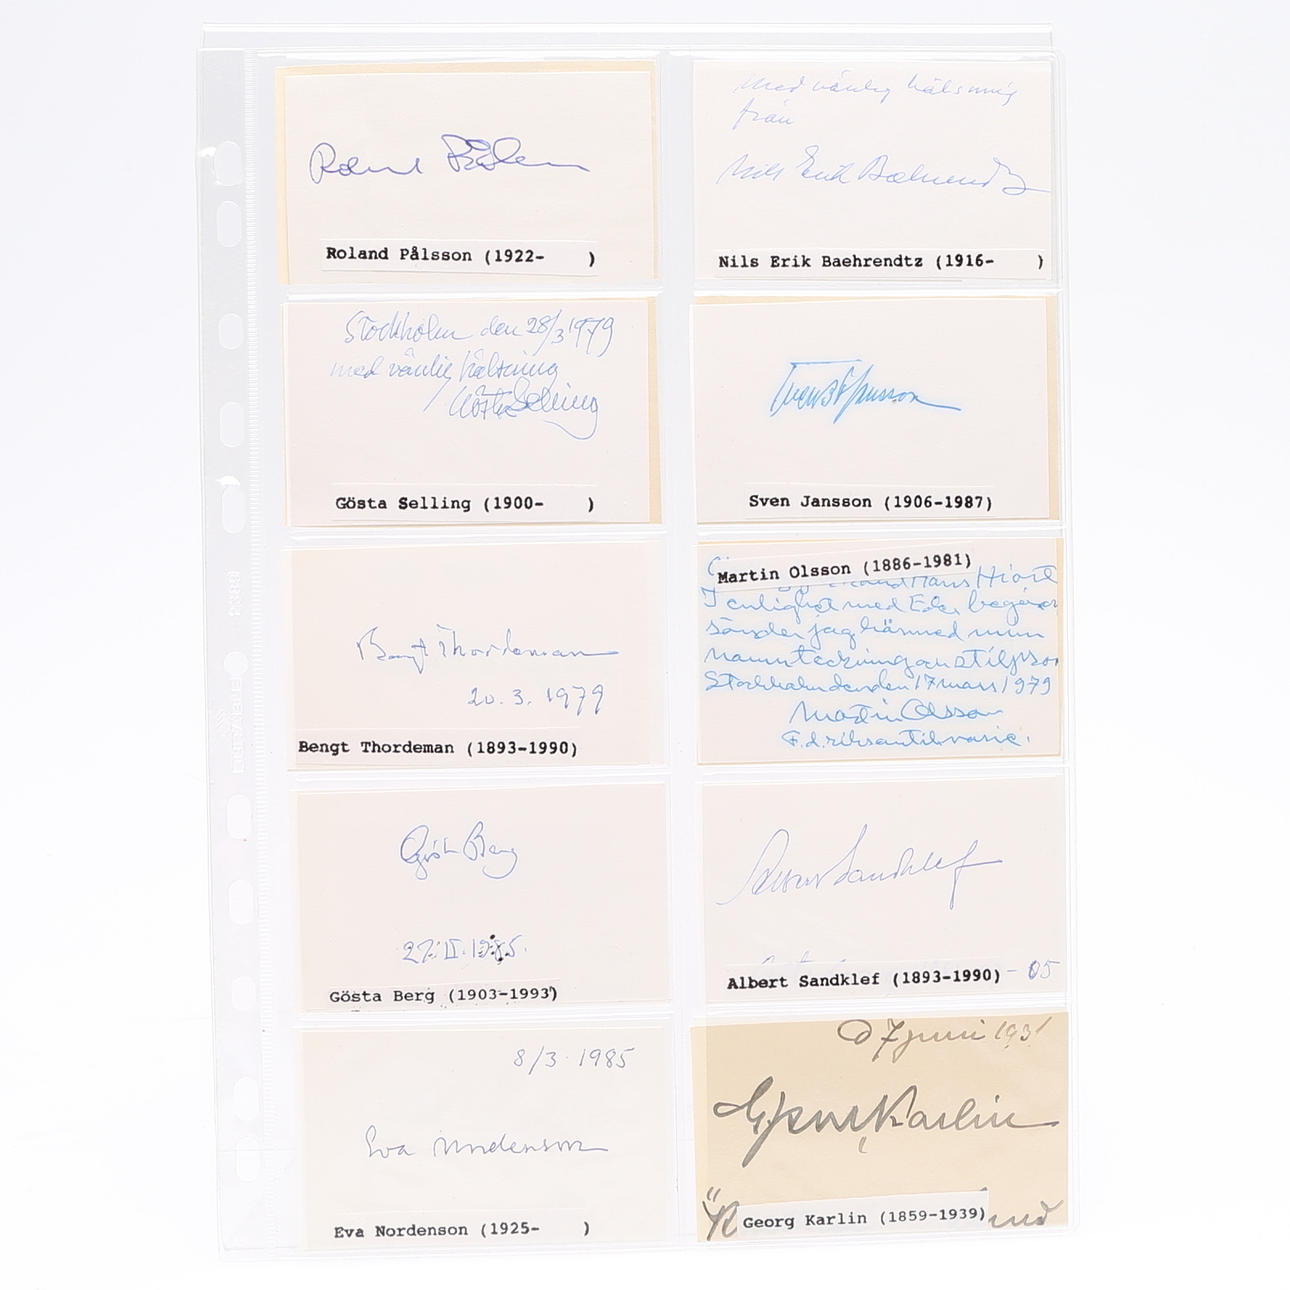 Roland Pålsson
Roland Pålsson (1922-    )
Med vänlig hälsning
från
Nils Erik Baehrendtz
Nils Erik Baehrendtz (1916-    )
Stockholm den 28/3 1979
med vänlig hälsning
Gösta Selling
Gösta Selling (1900-    )
Sven B F Jansson
Sven Jansson (1906-1987)
Bengt Thordeman
20.3.1979
Bengt Thordeman (1893-1990)
Martin Olsson (1886-1981)
Hans Hiort
I enlighet med Eder begäran
sänder jag härmed min
namnteckning
Stockholm den 17 mars 1979
Martin Olsson
F.d. riksantikvarie.
Gösta Berg
27.II.1985.
Gösta Berg (1903-1993)
Albert Sandklef
Albert Sandklef (1893-1990) -05
8/3 1985
Eva Nordenson
Eva Nordenson (1925-    )
D 7 juni 1931
G J:son Karlin
Georg Karlin (1859-1939)